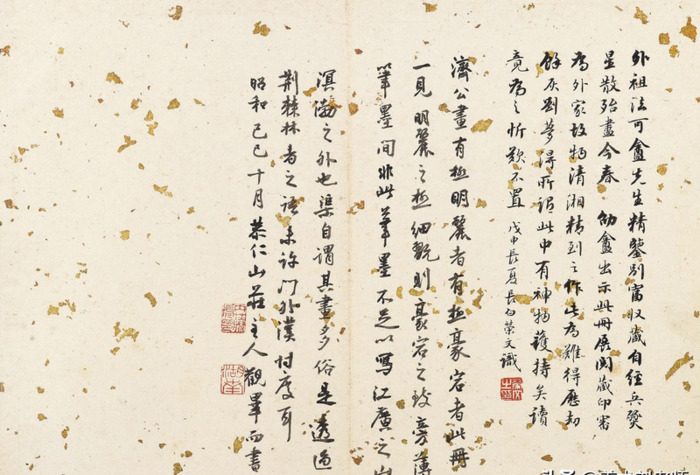 外祖法可盦先生精鑒别富收藏自經兵燹
星散殆盡今春 劬盦出示此冊展閱藏印審
為外家故物清湘精到之作此為難得歷劫
餘灰劉夢得所謂此中有神物護持矣讀
竟為之忻歎不置 戊申長夏長白榮文識
濟公畫有極明麗者有極豪宕者此冊
一見明麗之極細翫則豪宕之致旁薄
筆墨間非此筆墨不足以寫江廣之山
溟渤之外也渠自謂其畫多俗是透過
荆棘林者之語未許門外漢忖度耳
昭和己巳十月恭仁山莊主人觀畢而書